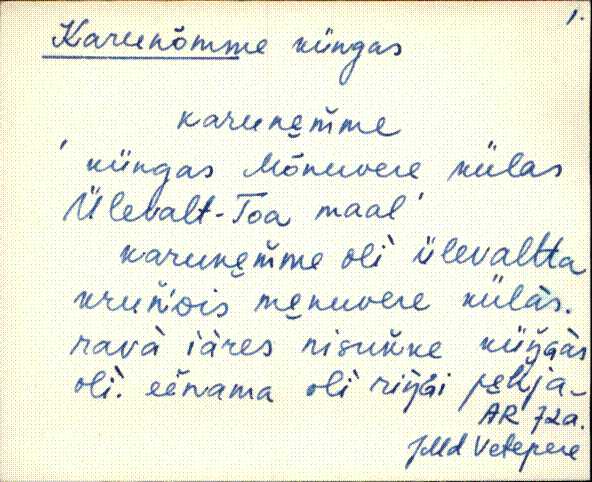 1.
Karunõmme küngas
karune̮m̆me
'küngas Mõnuvere külas
Ülevalt-Toa maal'
karune̮m̆me olì ülevaltta
kruńois me̮nuvere külàs.
ravà iàres nisuk̆ke küŋ̆gàs
olì. eènama olì riŋ̆gi pe̮hja-
AR 72a.
Vetepere